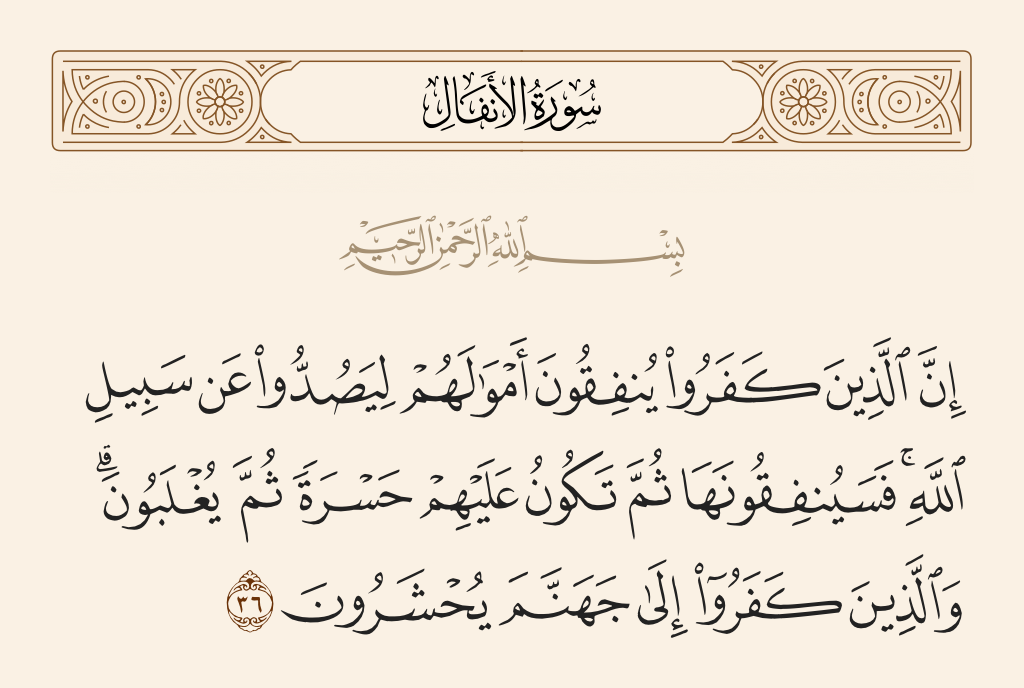 سُورَةُ الأَنفَالِ
بِسْمِ ٱللَّهِ ٱلرَّحْمَٰنِ ٱلرَّحِيمِ
إِنَّ ٱلَّذِينَ كَفَرُوا۟ يُنفِقُونَ أَمْوَٰلَهُمْ لِيَصُدُّوا۟ عَن سَبِيلِ
ٱللَّهِ ۚ فَسَيُنفِقُونَهَا ثُمَّ تَكُونُ عَلَيْهِمْ حَسْرَةً ثُمَّ يُغْلَبُونَ ۗ
وَٱلَّذِينَ كَفَرُوٓا۟ إِلَىٰ جَهَنَّمَ يُحْشَرُونَ ٣٦